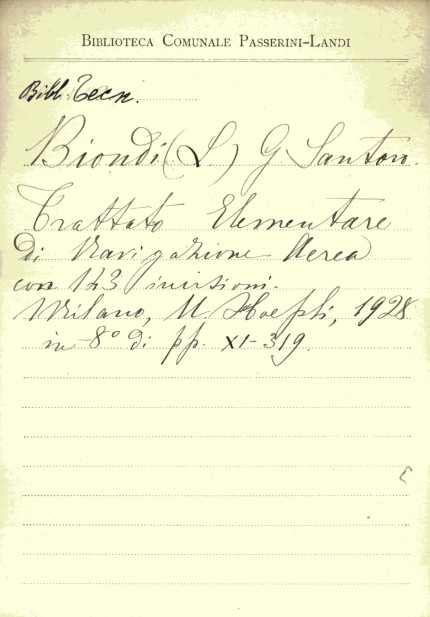 BIBLIOTECA COMUNALE PASSERINI-LANDI
Bibl. Tecn.
Biondi (L.) G Santoro.
Trattato Elementare
di Navigazione Aerea
con 143 incisioni.
Milano, U. Hoepli, 1928
in-8° di pp. XI-319.